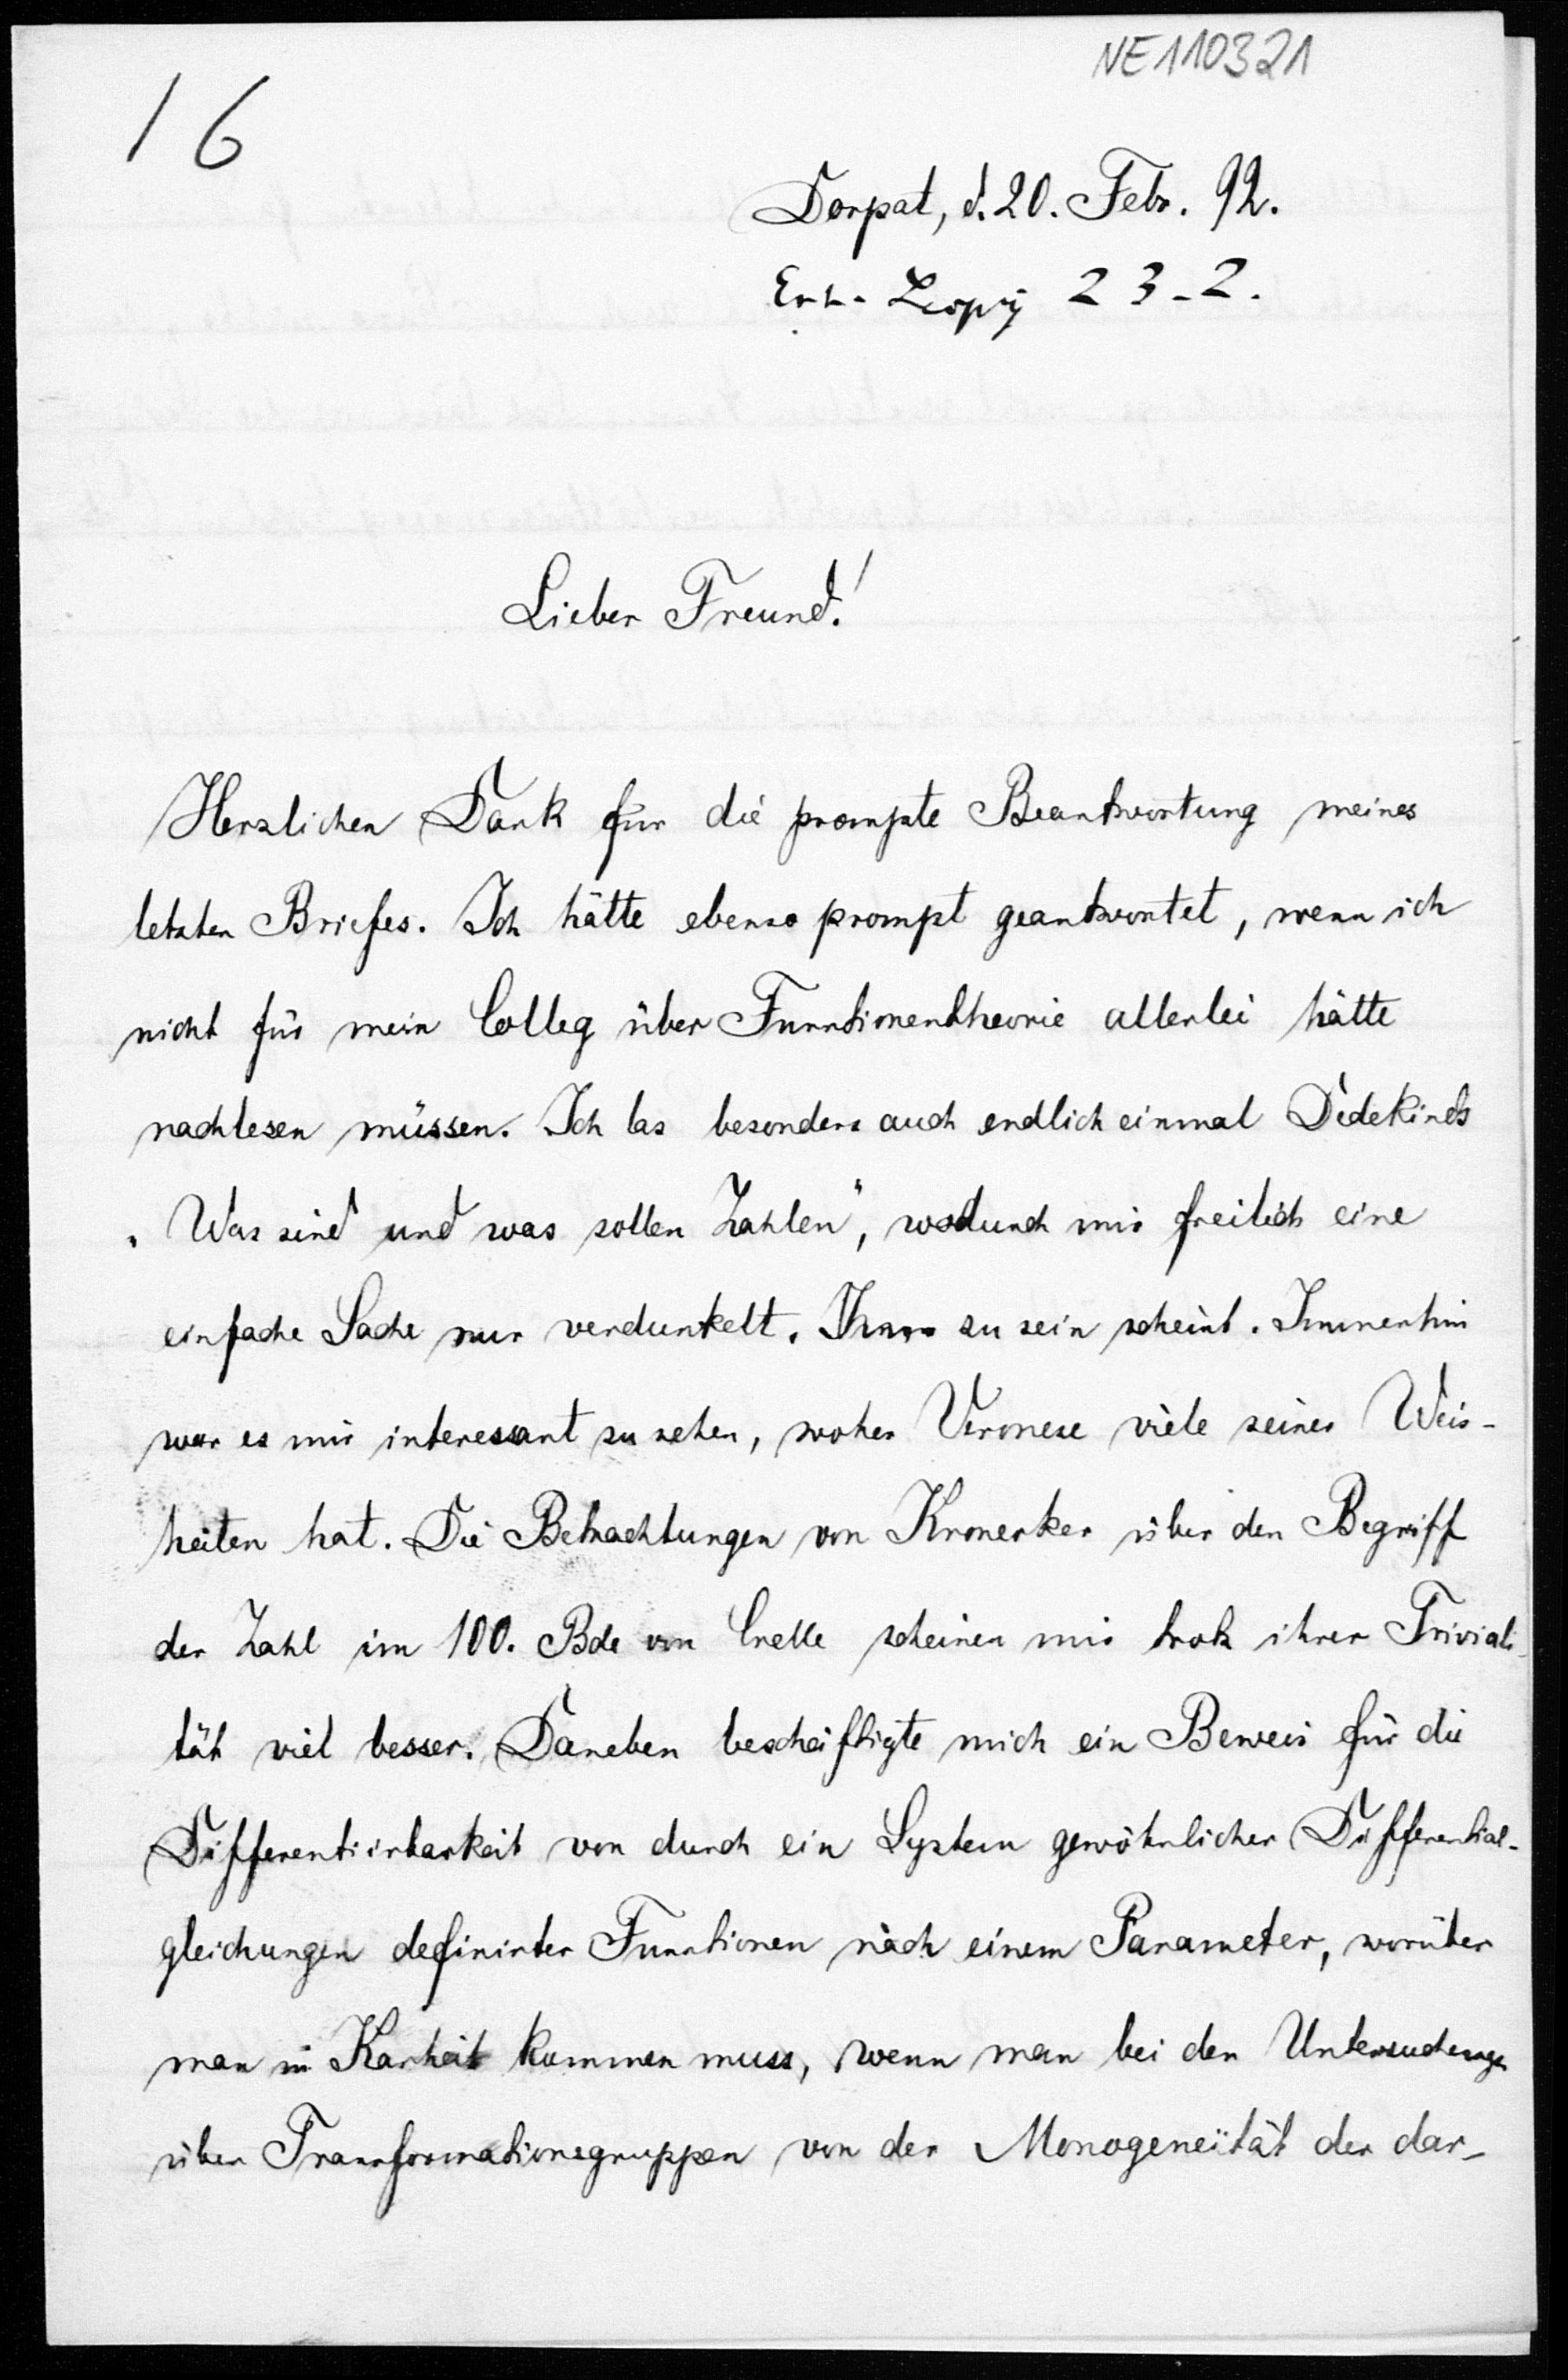 NE110321
16
Dorpat, d. 20. Febr. 92.
Erh. Leipzig 23-2.
Lieber Freund!
Herzlichen Dank für die prompte Beantwortung meines
letzten Briefes. Ich hätte ebenso prompt geantwortet, wenn ich
nicht für mein Colleg über Functionentheorie allerlei hätte
nachlesen müssen. Ich las besonders auch endlich einmal Dedekinds
„Was sind und was sollen Zahlen", wodurch mir freilich eine
einfache Sache nur verdunkelt. zu sein scheint. Immerhin
war es mir interessant zu sehen, woher Veronese viele seiner Weis-
heiten hat. Die Betrachtungen von Kronecker über den Begriff
der Zahl im 100. Bde von Crelle scheinen mir trotz ihrer Triviali-
tät viel besser. Daneben beschäftigte mich ein Beweis für die
Differentiirbarkeit von durch ein System gewöhnlicher Differential-
gleichungen definirter Functionen nach einem Parameter, worüber
man in Karheit kommen muss, wenn man bei den Untersuchungen
über Transformationsgruppen von der Monogeneität der dar-